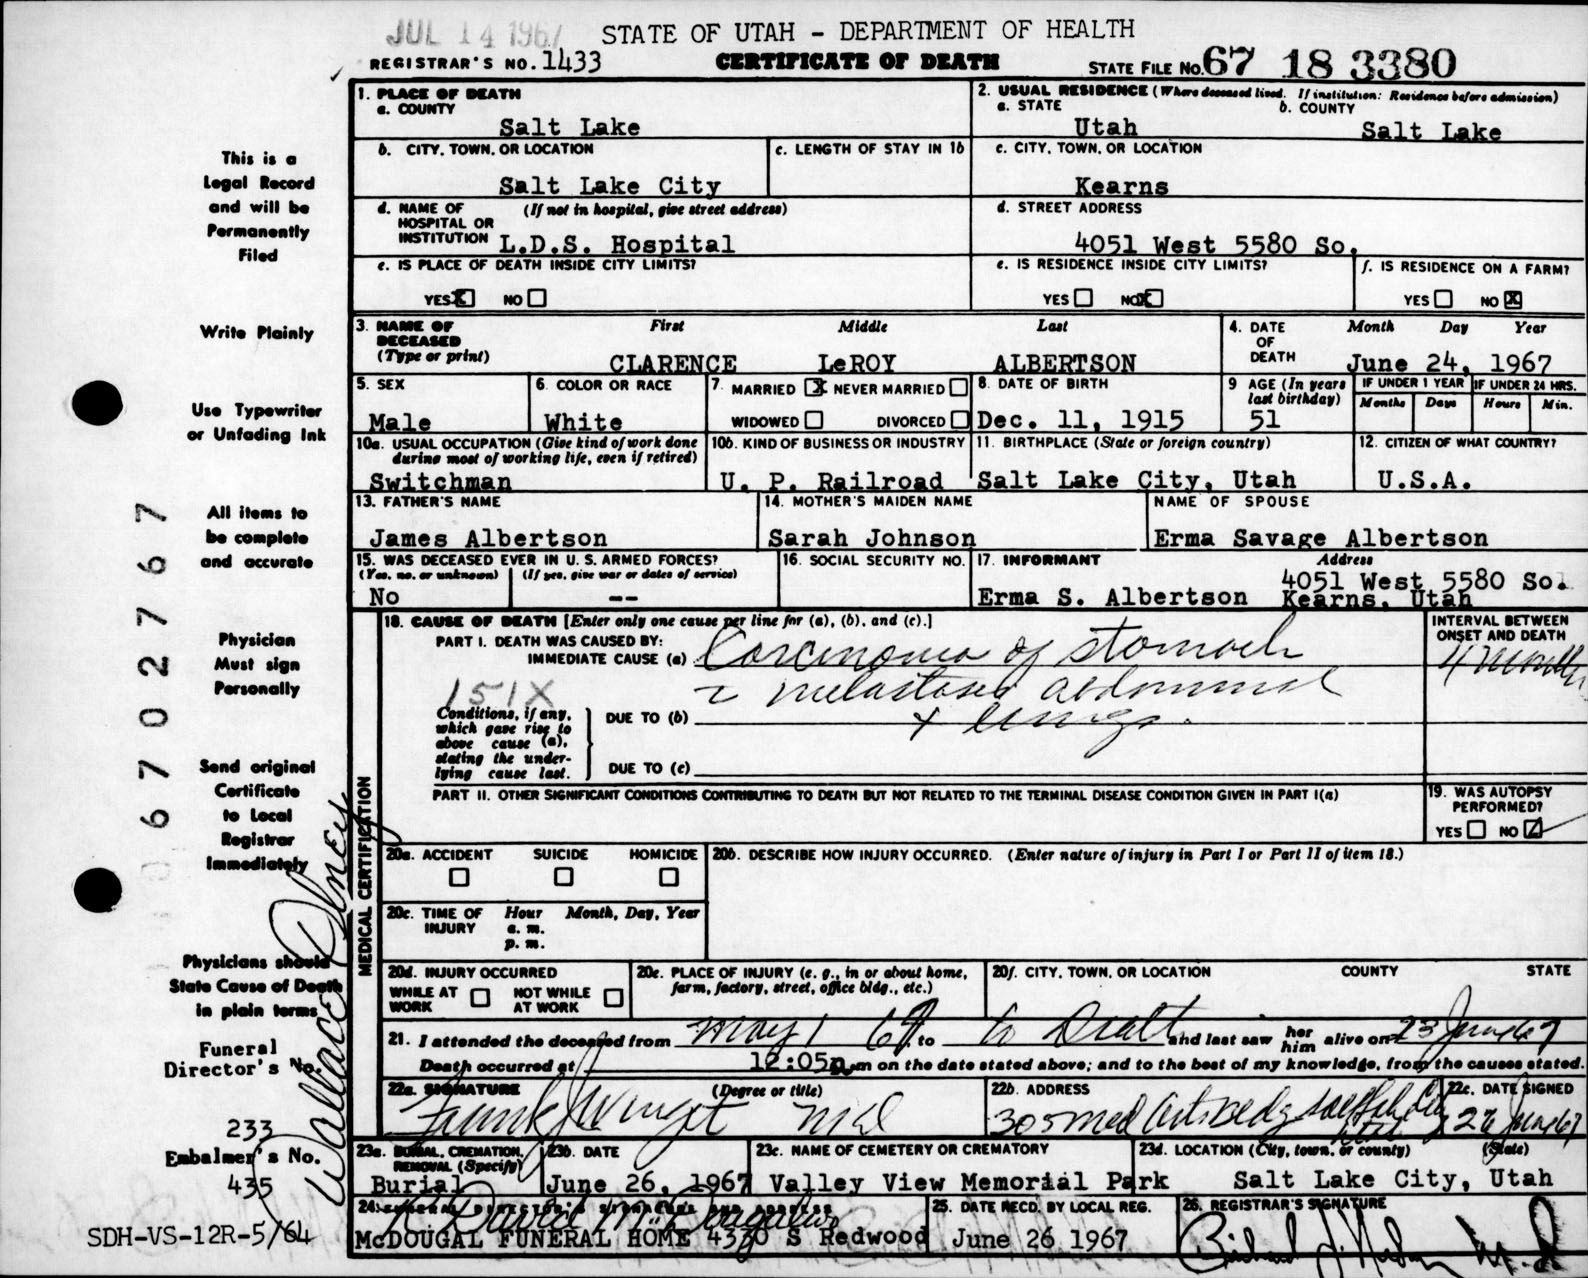 JUL 14 1967
STATE OF UTAH - DEPARTMENT OF HEALTH
REGISTRAR'S NO. 1433
CERTIFICATE OF DEATH
STATE FILE NO. 67 18 3380
This is a
Legal Record
and will be
Permanently
Filed
Write Plainly
Use Typewriter
or Unfading Ink
All items to
be complete
and accurate
Physician
Must sign
Personally
Send original
Certificate
to Local
Registrar
Immediately
Physicians should
State Cause of Death
in plain terms
Funeral
Director's No.
233
Embalmer's No.
435
SDH-VS-12R-5/64
6702767
Wallace Olney
1. PLACE OF DEATH
a. COUNTY
Salt Lake
2. USUAL RESIDENCE (Where deceased lived. If institution: Residence before admission)
a. STATE b. COUNTY
Utah Salt Lake
b. CITY, TOWN, OR LOCATION
Salt Lake City
c. LENGTH OF STAY IN 1b
c. CITY, TOWN, OR LOCATION
Kearns
d. NAME OF (If not in hospital, give street address)
HOSPITAL OR
INSTITUTION L.D.S. Hospital
d. STREET ADDRESS
4051 West 5580 So.
e. IS PLACE OF DEATH INSIDE CITY LIMITS?
YES X NO
e. IS RESIDENCE INSIDE CITY LIMITS?
YES NO X
f. IS RESIDENCE ON A FARM?
YES NO X
3. NAME OF First Middle Last
DECEASED
(Type or print) CLARENCE LeROY ALBERTSON
4. DATE Month Day Year
OF
DEATH June 24, 1967
5. SEX
Male
6. COLOR OR RACE
White
7. MARRIED X NEVER MARRIED
WIDOWED DIVORCED
8. DATE OF BIRTH
Dec. 11, 1915
9 AGE (In years
last birthday)
51
IF UNDER 1 YEAR
Months Days
IF UNDER 24 HRS.
Hours Min.
10a. USUAL OCCUPATION (Give kind of work done
during most of working life, even if retired)
Switchman
10b. KIND OF BUSINESS OR INDUSTRY
U. P. Railroad
11. BIRTHPLACE (State or foreign country)
Salt Lake City, Utah
12. CITIZEN OF WHAT COUNTRY?
U.S.A.
13. FATHER'S NAME
James Albertson
14. MOTHER'S MAIDEN NAME
Sarah Johnson
NAME OF SPOUSE
Erma Savage Albertson
15. WAS DECEASED EVER IN U. S. ARMED FORCES?
(Yes, no, or unknown) (If yes, give war or dates of service)
No --
16. SOCIAL SECURITY NO.
17. INFORMANT Address
Erma S. Albertson 4051 West 5580 So.
Kearns, Utah
MEDICAL CERTIFICATION
18. CAUSE OF DEATH [Enter only one cause per line for (a), (b), and (c).]
PART I. DEATH WAS CAUSED BY:
IMMEDIATE CAUSE (a) Carcinoma of stomach
151X
c metastases abdominal
Conditions, if any,
which gave rise to
above cause (a),
stating the under-
lying cause last.
DUE TO (b) + lungs.
DUE TO (c)
INTERVAL BETWEEN
ONSET AND DEATH
4 months
PART II. OTHER SIGNIFICANT CONDITIONS CONTRIBUTING TO DEATH BUT NOT RELATED TO THE TERMINAL DISEASE CONDITION GIVEN IN PART I(a)
19. WAS AUTOPSY
PERFORMED?
YES NO
20a. ACCIDENT SUICIDE HOMICIDE
20b. DESCRIBE HOW INJURY OCCURRED. (Enter nature of injury in Part I or Part II of item 18.)
20c. TIME OF Hour Month, Day, Year
INJURY a. m.
p. m.
20d. INJURY OCCURRED
WHILE AT NOT WHILE
WORK AT WORK
20e. PLACE OF INJURY (e. g., in or about home,
farm, factory, street, office bldg., etc.)
20f. CITY, TOWN, OR LOCATION COUNTY STATE
21. I attended the deceased from May 1 67 to to Death and last saw her him alive on 23 June 67
Death occurred at 12:05 p.m on the date stated above; and to the best of my knowledge, from the causes stated.
22a. SIGNATURE (Degree or title)
Frank J Winget MD
22b. ADDRESS
305 Med Arts Bldg Salt Lake City Utah
22c. DATE SIGNED
26 June 67
23a. BURIAL, CREMATION,
REMOVAL (Specify)
Burial
23b. DATE
June 26, 1967
23c. NAME OF CEMETERY OR CREMATORY
Valley View Memorial Park
23d. LOCATION (City, town, or county) (State)
Salt Lake City, Utah
24. FUNERAL DIRECTOR'S SIGNATURE AND ADDRESS
R David McDougal
McDOUGAL FUNERAL HOME 4330 S Redwood
25. DATE RECD. BY LOCAL REG.
June 26 1967
26. REGISTRAR'S SIGNATURE
M.D.